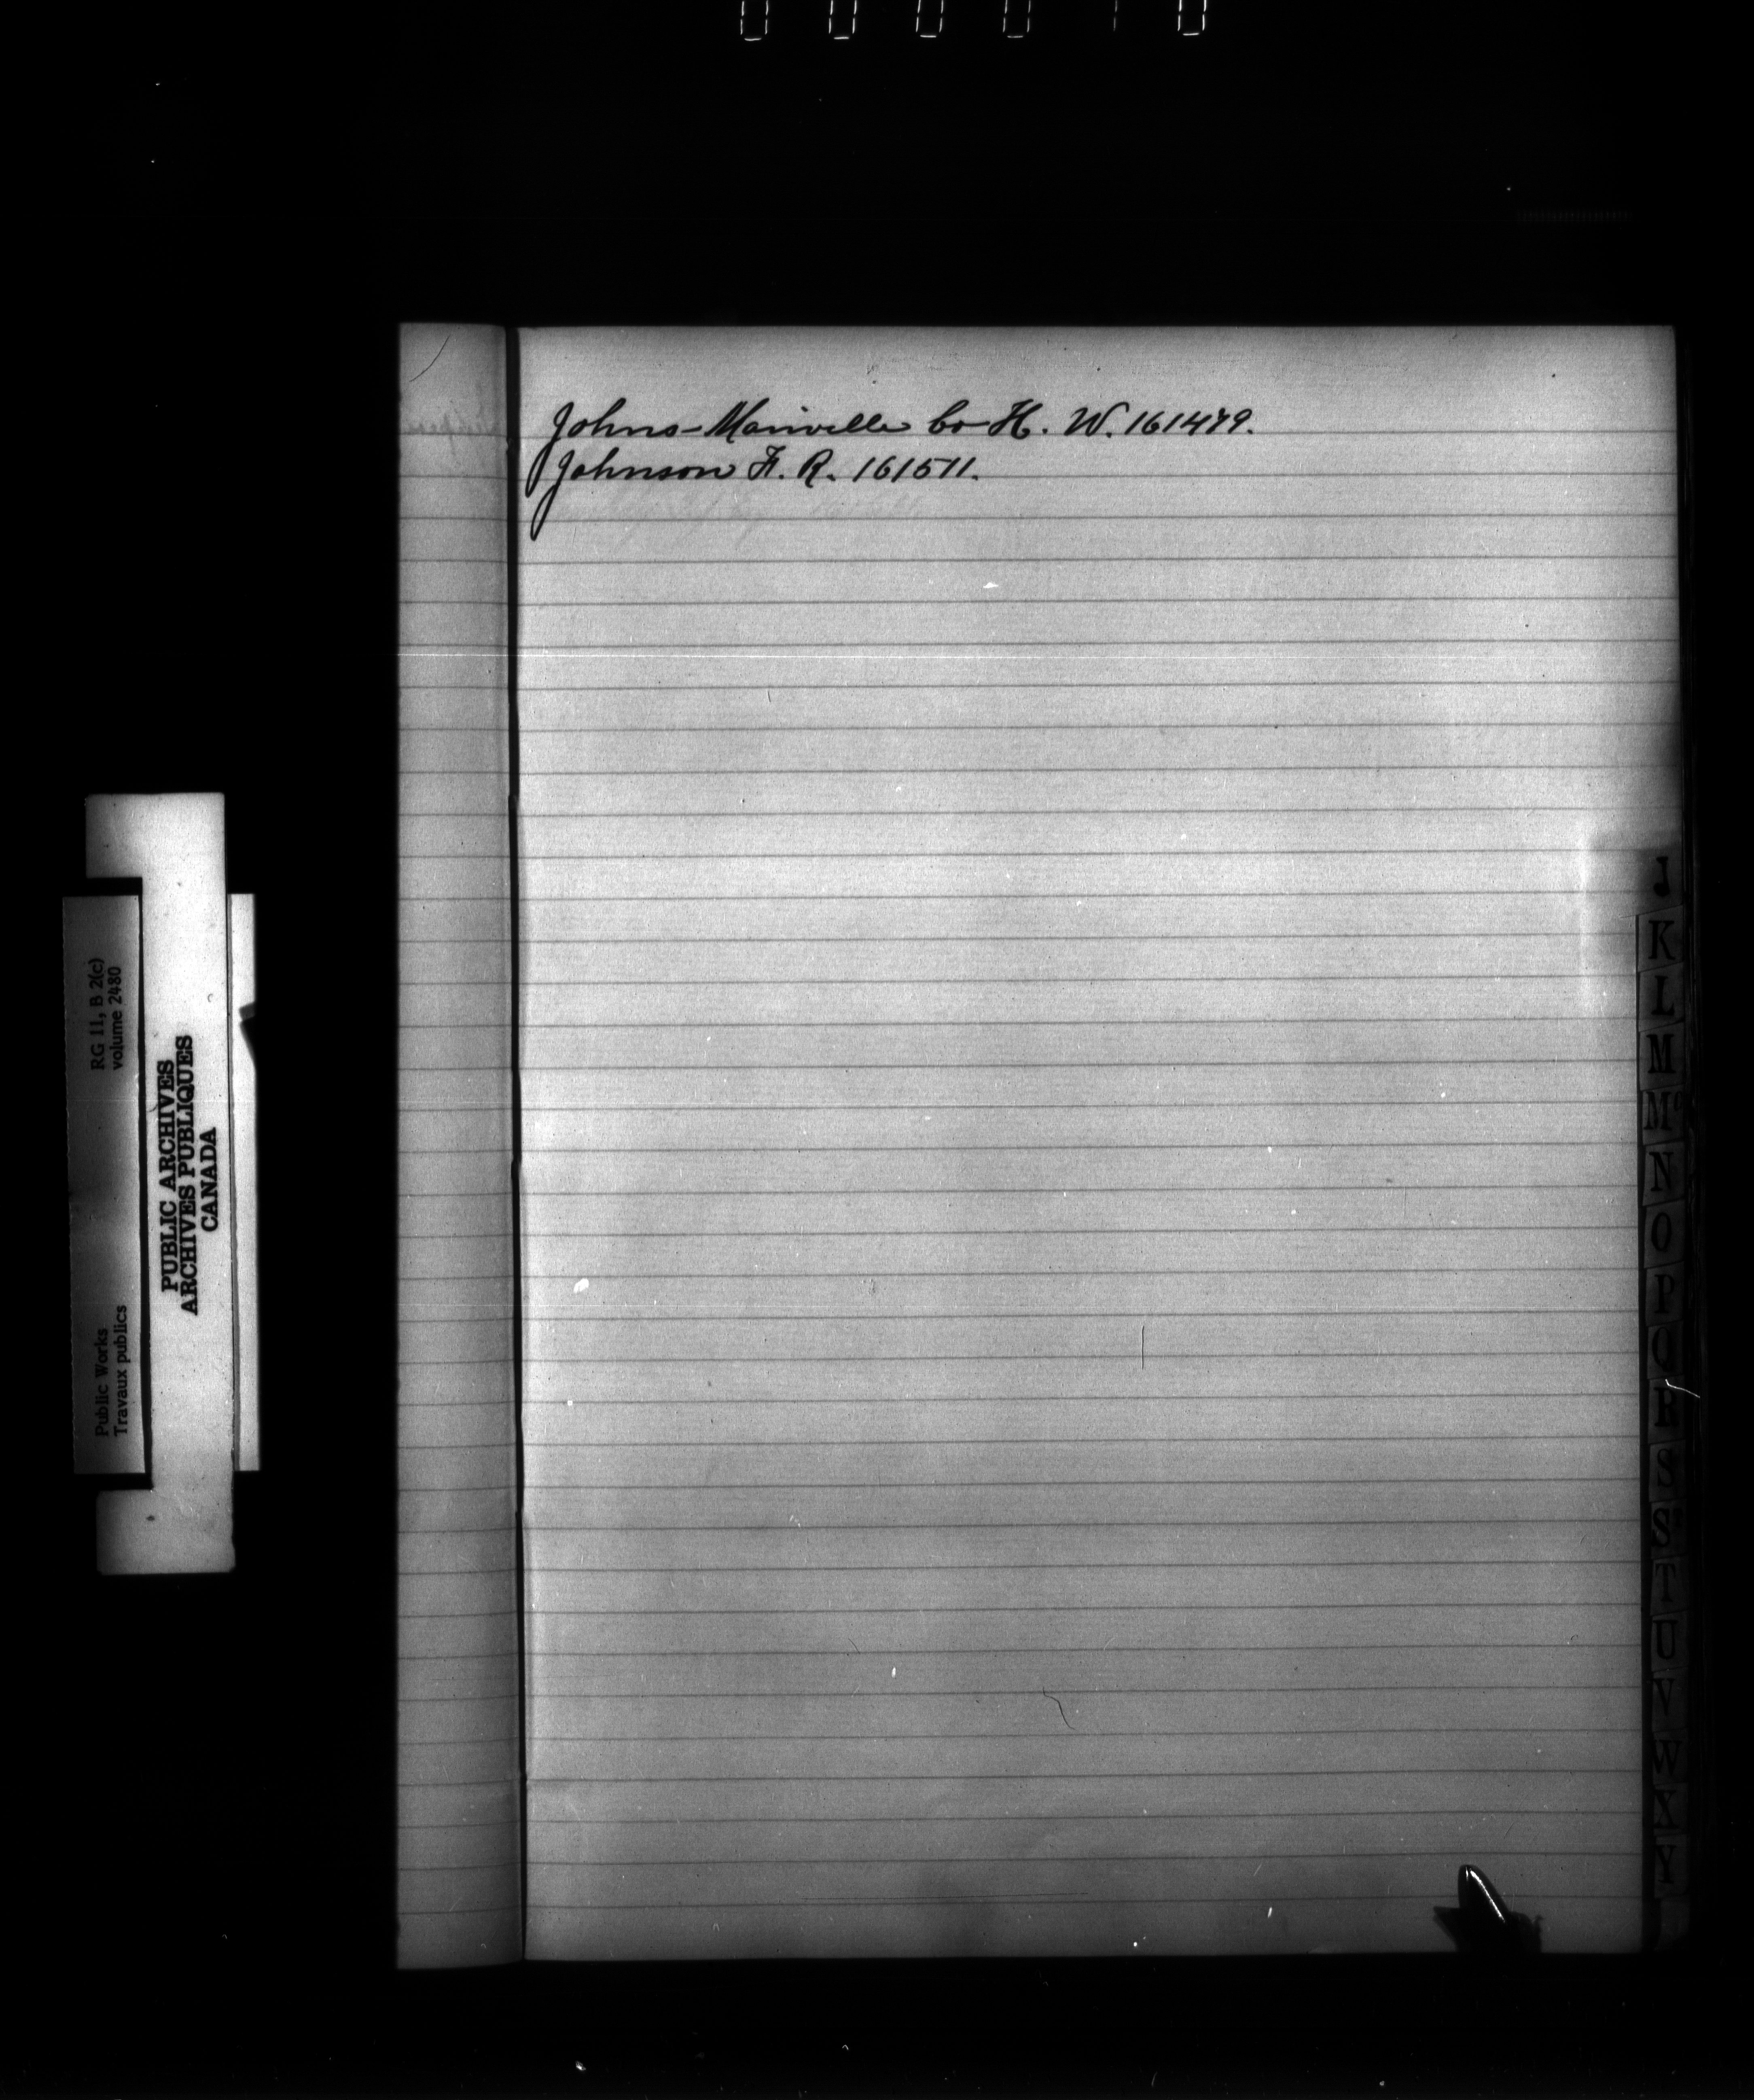 Johns-Manville Co H. W. 161479.
Johnson F. R. 161511.
J
K
L
M
Mc
N
O
P
Q
R
S
St
T
U
V
W
X
Y
RG 11, B 2(c)
volume 2480
Public Works
Travaux publics
PUBLIC ARCHIVES
ARCHIVES PUBLIQUES
CANADA